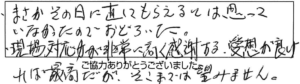 ・まさかその日に直してもらえるとは思って
いなかったのでおどろいた。
・現場対応力が非常に高く感謝する。愛想が良け
ご協力ありがとうございました
れば最高だが、そこまでは望みません。